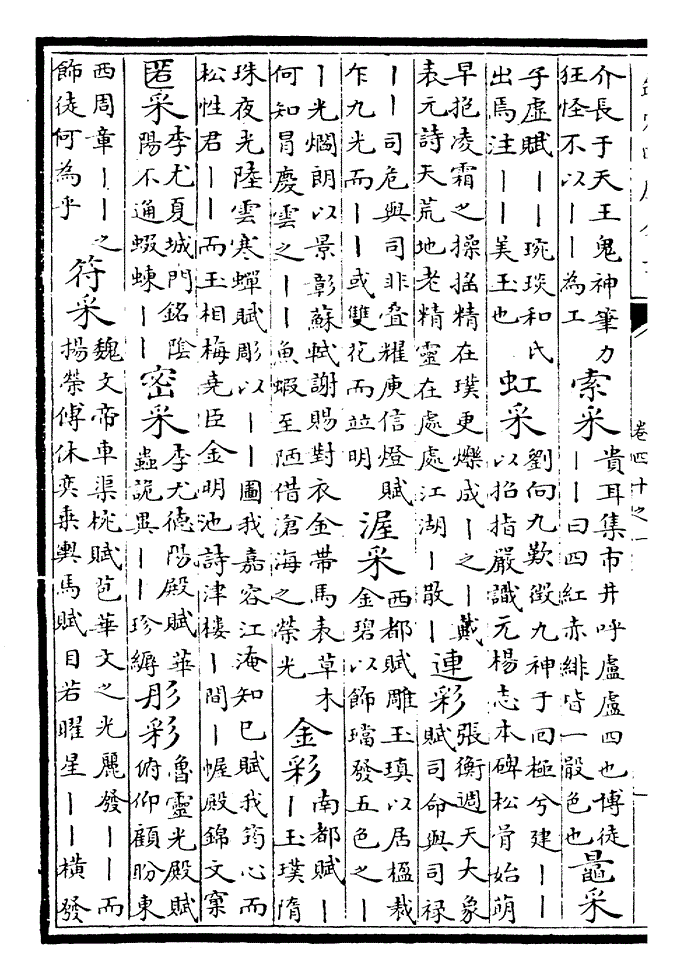 介長于天王鬼神筆力
狂怪不以丨丨為工
索采
貴耳集市井呼盧盧四也博徒
丨丨曰四紅赤緋皆一骰色也
鼂采
子虛賦丨丨琬琰和氏
出焉注丨丨美玉也
虹采
劉向九歎徴九神于回極兮建丨丨
以招指嚴識元楊志本碑松骨始萌
早抱凌霜之操揺精在璞更爍成丨之丨戴
表元詩天荒地老精靈在處處江湖丨散丨
連彩
張衡週天大象
賦司命與司禄
丨丨司危與司非叠耀庾信燈賦
乍九光而丨丨或雙花而並明
渥采
西都賦雕玉瑱以居楹裁
金碧以飾璫發五色之丨
丨光爓朗以景彰蘇軾謝賜對衣金帶馬表草木
何知冒慶雲之丨丨魚蝦至陋借滄海之榮光
金彩
南都賦丨
丨玉璞隋
珠夜光陸雲寒蟬賦彫以丨丨圖我嘉容江淹知己賦我筠心而
松性君丨丨而玉相梅堯臣金明池詩津樓丨間丨幄殿錦文窠
匿采
李尤夏城門銘陰
陽不通蝃蝀丨丨
密采
李尤德陽殿賦華
蟲詭異丨丨珍縟
彤彩
魯靈光殿賦
俯仰顧盼東
西周章丨丨之
飾徒何為乎
符采
魏文帝車渠椀賦苞華文之光麗發丨丨而
揚榮傅休奕乗輿馬賦目若曜星丨丨橫發
卷四十之一